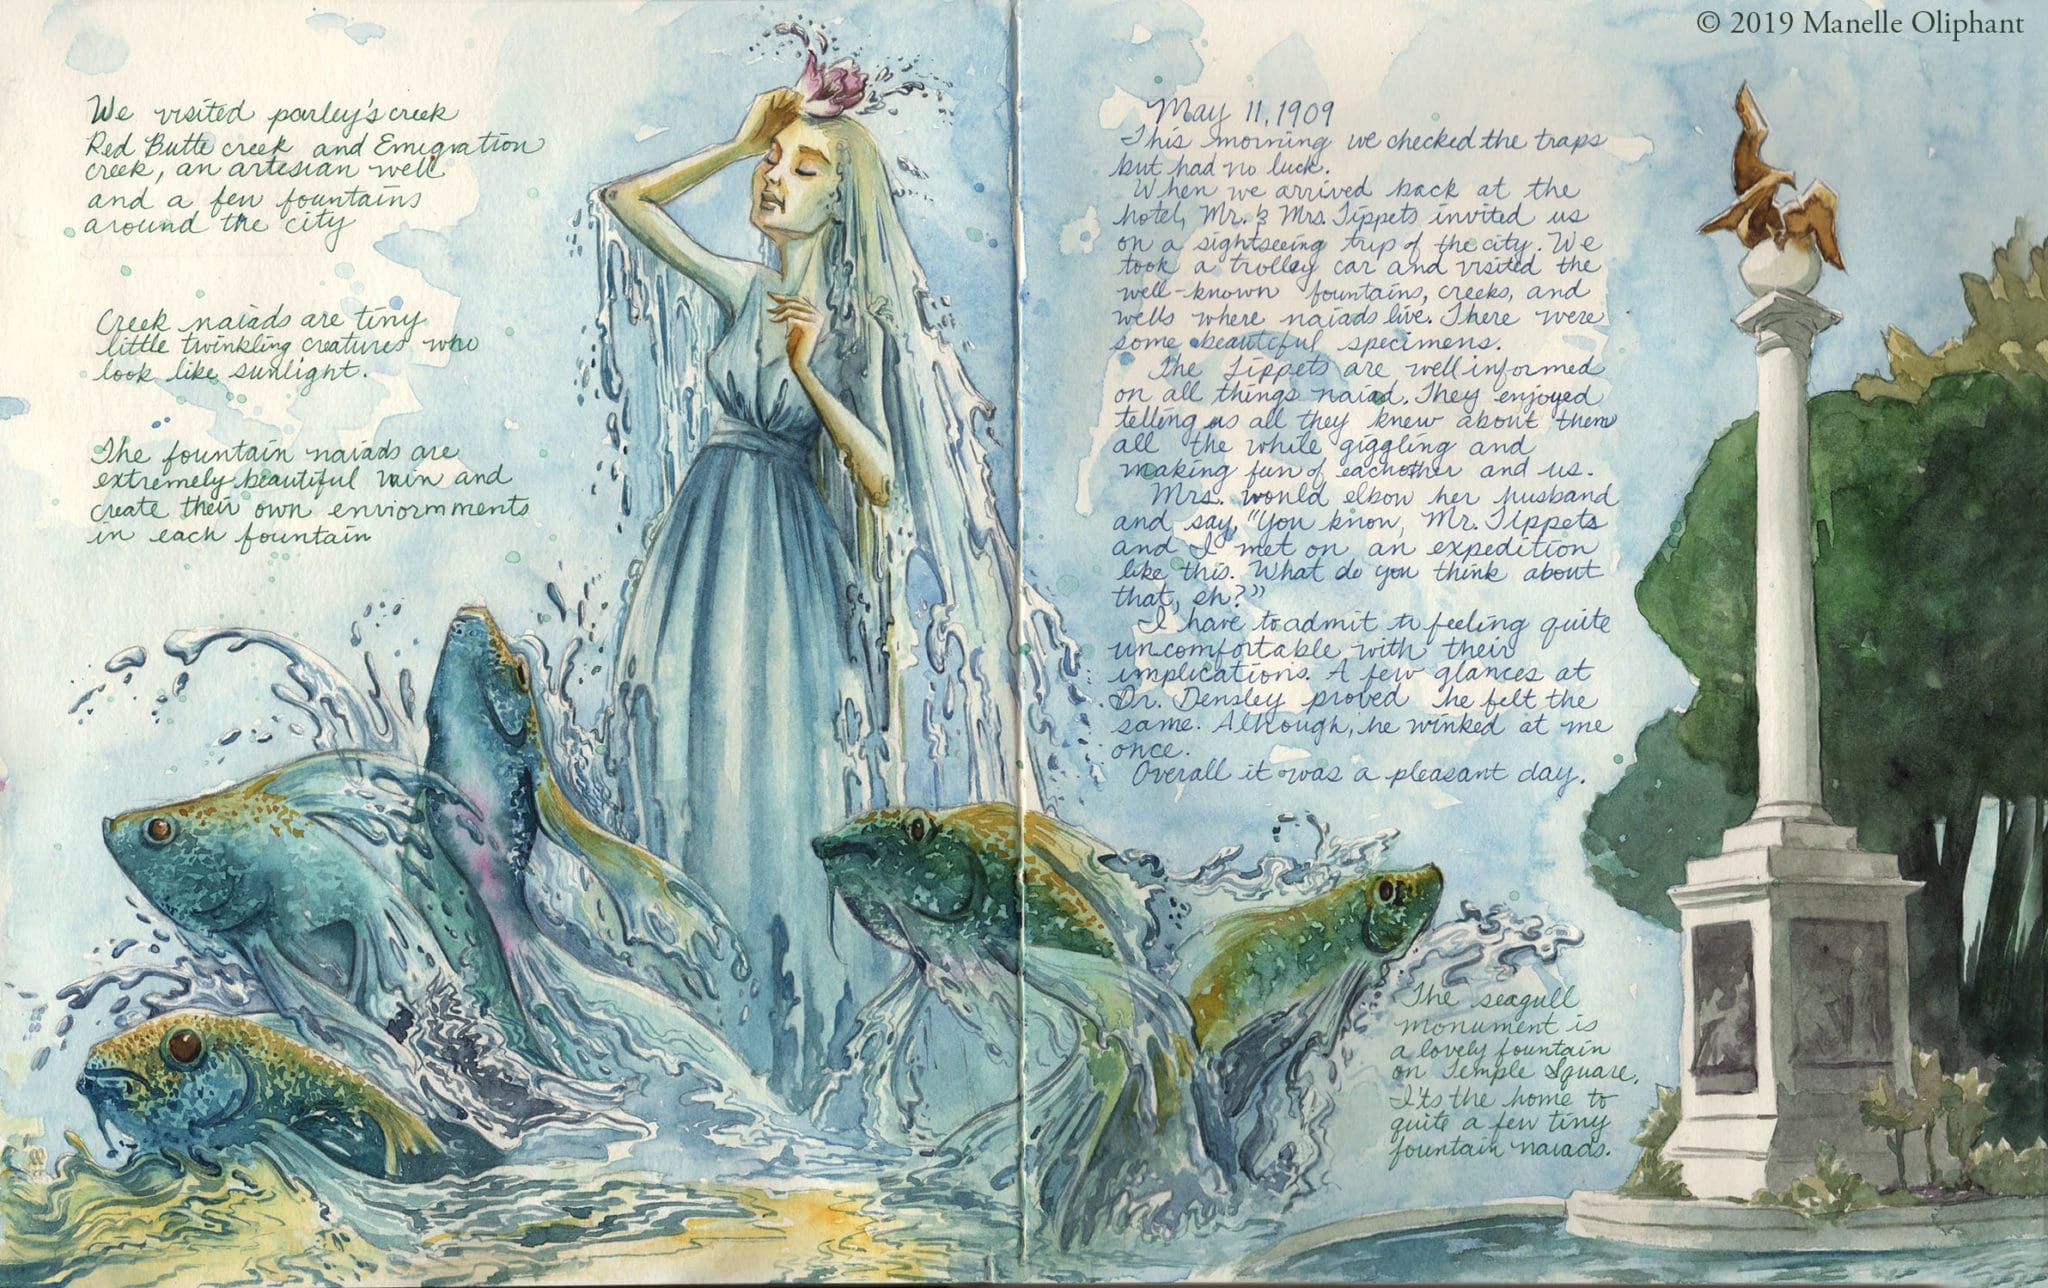 © 2019 Manelle Oliphant
We visited parley's creek
Red Butte creek and Emigration
creek, an artesian well
and a few fountains
around the city
Creek naiads are tiny
little twinkling creatures who
look like sunlight.
The fountain naiads are
extremely beautiful vain and
create their own enviornments
in each fountain
May 11, 1909
This morning we checked the traps
but had no luck.
When we arrived back at the
hotel, Mr. & Mrs. Tippets invited us
on a sightseeing trip of the city. We
took a trolley car and visited the
well-known fountains, creeks, and
wells where naiads live. There were
some beautiful specimens.
The Tippets are well informed
on all things naiad. They enjoyed
telling us all they knew about them
all the while giggling and
making fun of eachother and us.
Mrs. would elbow her husband
and say, "You know, Mr. Tippets
and I met on an expedition
like this. What do you think about
that, eh?"
I have to admit to feeling quite
uncomfortable with their
implications. A few glances at
Dr. Densley proved he felt the
same. Although, he winked at me
once.
Overall it was a pleasant day.
The seagull
monument is
a lovely fountain
on Temple Square.
It's the home to
quite a few tiny
fountain naiads.